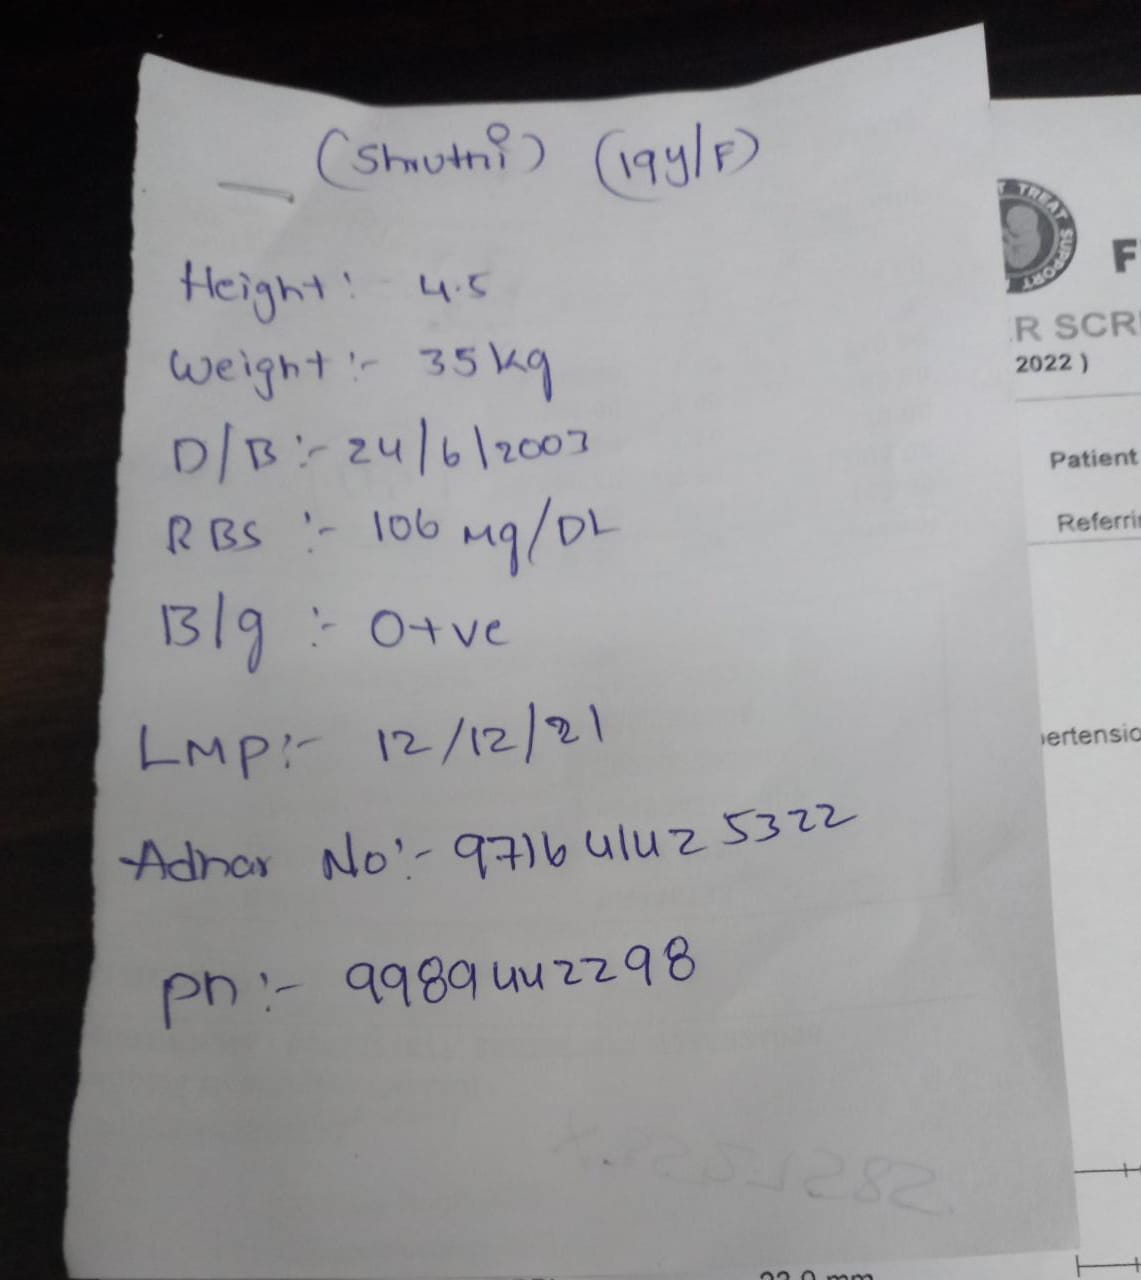 (Shruthi) (19y/F)
Height:- 4.5
Weight:- 35 kg
D/B:- 24/6/2003
RBS :- 106 Mg/DL
B/g :- O+ve
LMP:- 12/12/21
Adhar No:- 9716 4142 5322
Ph:- 9989442298
TREAT SUPPORT
F
R SCR
2022 )
Patient
Referrin
ertensio
22.0 mm